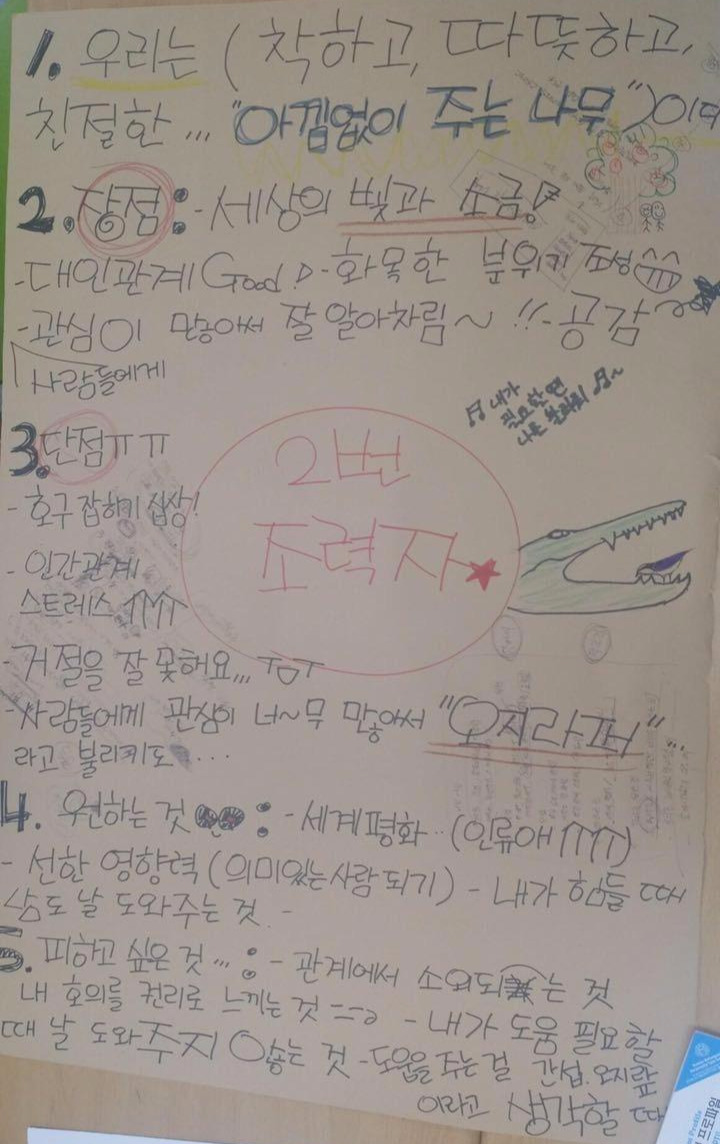 1. 우리는 (착하고, 따뜻하고,
친절한... "아낌없이 주는 나무")이다
2. 장점: - 세상의 빛과 소금!
- 대인관계 Good! - 화목한 분위기 조성
- 관심이 많아서 잘 알아차림~ !! - 공감
사람들에게
♬내가
필요할땐
나를 불러줘 ♬~
3. 단점ㅠㅠ
- 호구 잡히기 십상!
2번
조력자★
- 인간관계
스트레스
- 거절을 잘 못해요...ㅜㅁㅜ
- 사람들에게 관심이 너~무 많아서 "오지라퍼"...
라고 불리기도 ...
4. 원하는 것 : - 세계평화.. (인류애
- 선한 영향력 (의미있는 사람 되기) - 내가 힘들 때
남도 날 도와주는 것. -
5. 피하고 싶은 것...: - 관계에서 소외되는 것
내 호의를 권리로 느끼는 것 - 내가 도움 필요할
때 날 도와주지 않는 것 - 도움을 주는 걸 간섭, 오지랖
이라고 생각할 때
프로파일